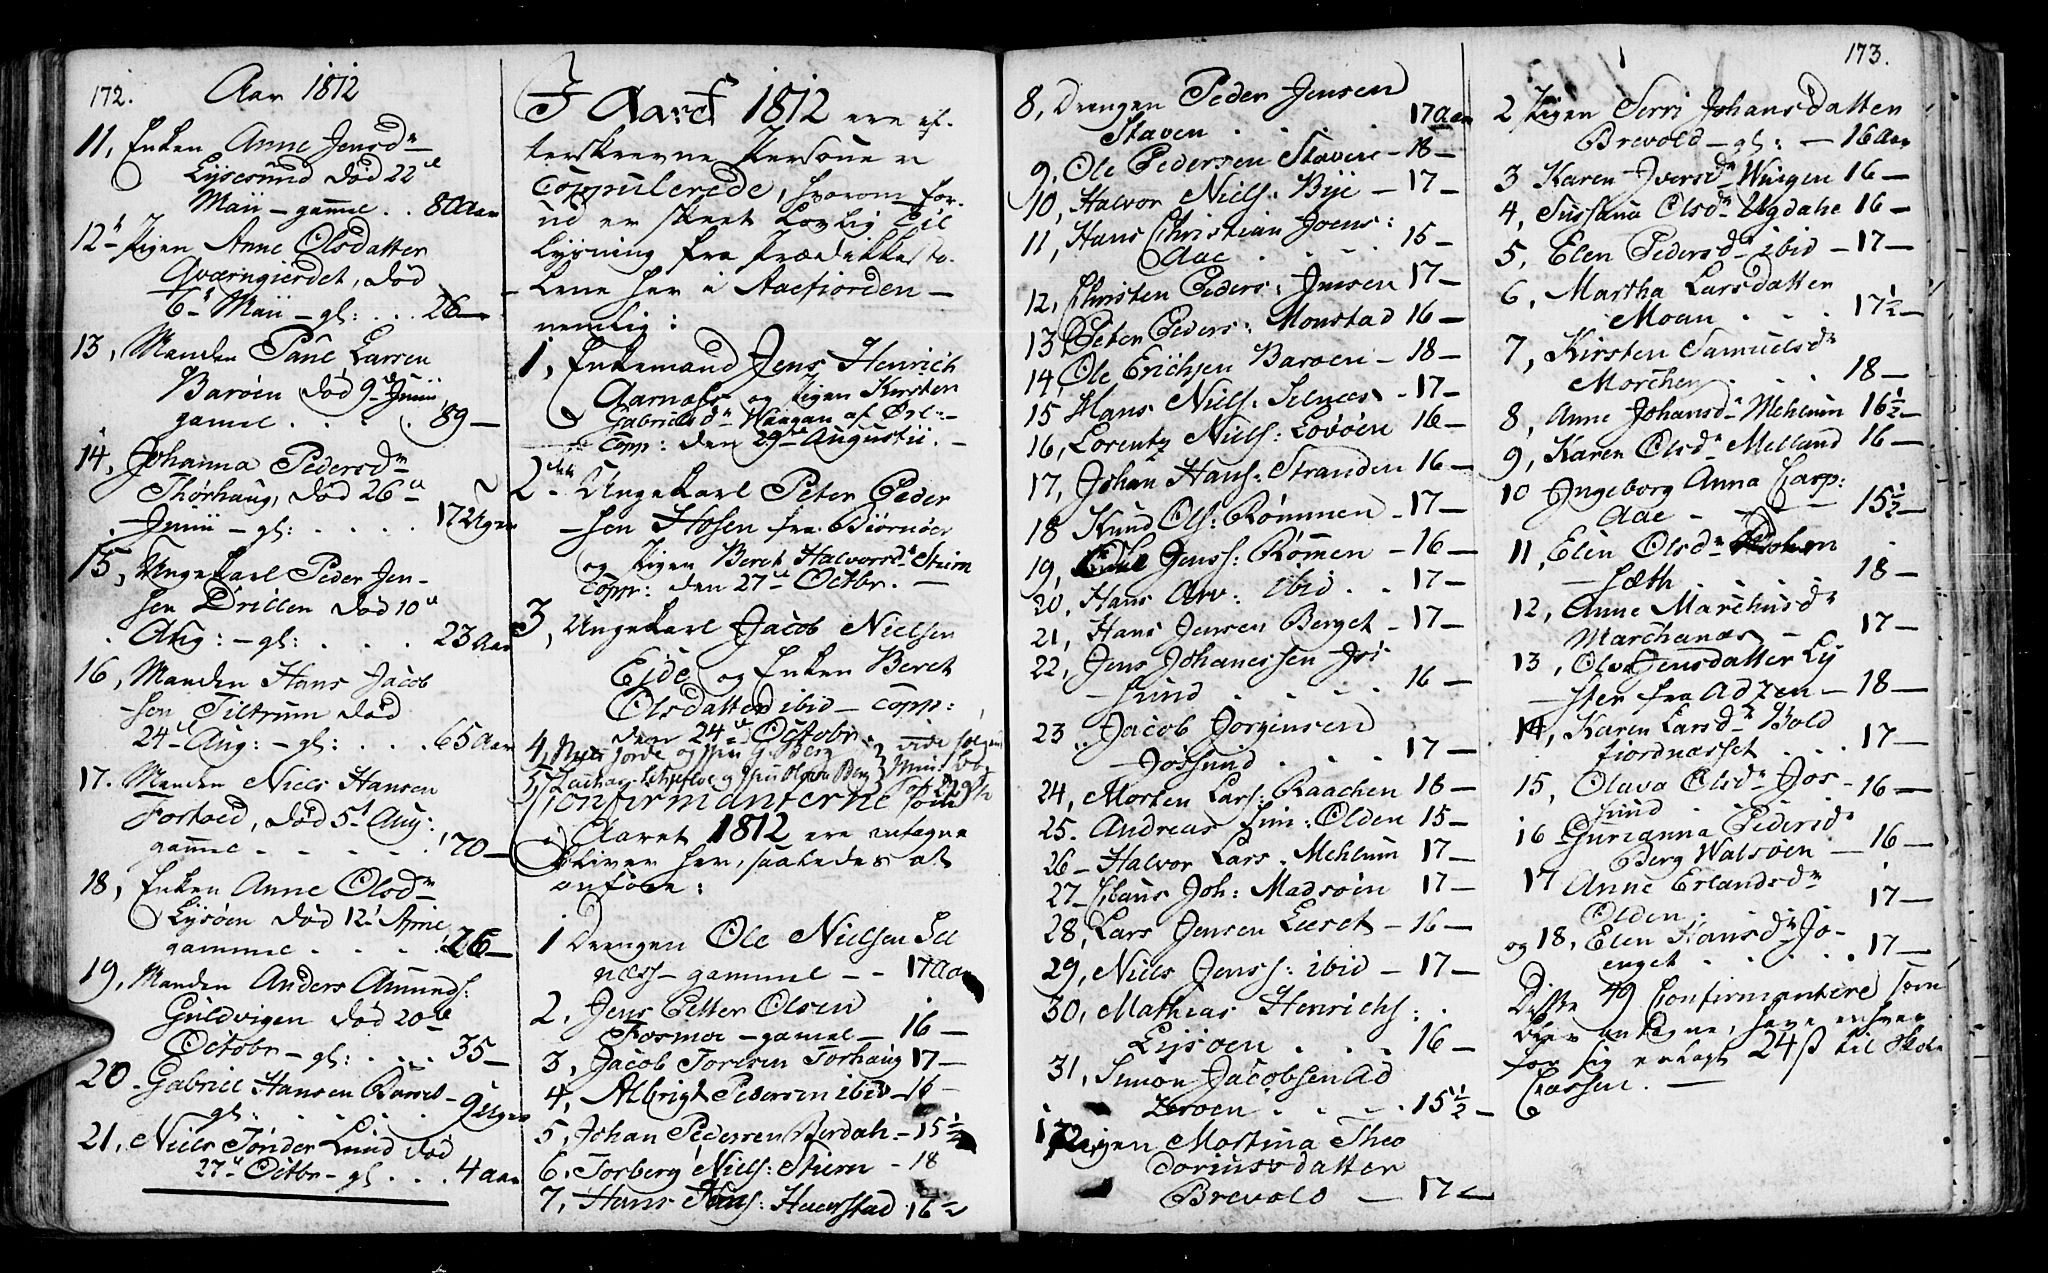 172.
Aar 1812
11, Enken Anne Jensdr
Lysesund død 22de
Maii – gamel . . 80 Aar
12, Pigen Anne Olsdatter
Qværngierdet, død
6te Maii – gl: . . . 26 –
13, Manden Paul Larsen
Barøen død 9de Junii,
gamel . . . . . 89 –
14, Johanna Pedersdr
Thørhaug, død 26de
Junii – gl: . . . . 17 Uger
15, Ungekarl Peder Jen-
sen Drillen død 10de
Aug: – gl: . . . . 23 Aar
16, Manden Hans Jacob
sen Tiltrum død
24de Aug: – gl: . . . 65 Aar
17. Manden Niels Hansen
død 5te Aug:
gammel . . . . . 70 –
18, Enken Anne Olsdr
Lysøen død 12te April
gammel . . . . 26 –
19, Manden Anders Amunds:
Guldvigen død 20de
Octobr – gl: . . . . 35 –
20. Gabriel Hansen
gl: . . . . . 9 Uger
21, Niels Tønder Lund død
27de Octbr – gl . . . 4 Aar
I Aaret 1812 ere ef-
terskrevne Personer
Coppulerede, hvorom for-
ud er skeet Lovlig Til
Lysning fra Prædikesto-
lene her i Aaefiorden –
nemlig:
1, Enkemand Jens Henrich
Aarnæs og Pigen Kirsten
Gabrielsdr Waagan af
Copp: den 29de Augustii. –
2den Ungekarl Peter Peder
sen Hosen fra Biørnøer
og Pigen Beret Halvorsdr Stiern
Copp: den 27de Octbr. –
3, Ungekarl Jacob Nielsen
Eide og Enken Beret
Olsdatter ibid – Copp:
den 24de Octobr.
4,
5,
Confirmanterne som
i Aaret 1812 ere antagne
bliver her, saaledes at
anføre:
1 Drengen Ole Nielsen Sel
næss – gammel – – 17 Aar
2, Jens Petter Olsen
Fosmoe – gamel – 16 –
3, Jacob Torlsen Torhaug 17 –
4, Albrigt Pedersen ibid – 16 –
5, Johan Pedersen – 15 1/2
6, Torberg Niels: Stiern – 18
7, Hans Haarstad 16 1/2
8, Drengen Peder Jensen
Staven . . . . . 17 Aar
9, Ole Pedersen Staven – 18 –
10, Halvor Niels: Bye – 17 –
11, Hans Christian Joens:
Aae . . . . 15 –
12, Christen Peders: Jensen 17 –
13, Peter Peders: Monstad 16 –
14, Ole Erichsen Barøen – 18 –
15 Hans Niels: Selnæs – 17 –
16, Lorentz Niels: Lovøen 16 –
17, Johan Hans: Stranden 16 –
18 Knud Ols: Rømmen – 17 –
19, Jenss: Rømen – 16 –
20, Hans Arv: ibid . . 17 –
21, Hans Jensen Berget – 17 –
22, Jens Johanessen Jøs-
sund . . . . 16 –
23 Jacob Jørgensen
Jøssund . . . . 17 –
24, Morten Lars: Raachen 18 –
25. Andreas Sim: Olden 15 –
26 – Halvor Lars. Mehlum 17 –
27 – Claus Joh: Madsøen 17 –
28, Lars Jensen Leeret – 16 –
29, Niels Jenss: ibid – 17 –
30, Mathias Henrichs:
Lysøen . . . . 16 –
31, Simon Jacobsen Ad
zeroen . . . . 15 1/2 –
1, Pigen Martina Theo
doriusdatter
Brevold – 17 –
173.
2 Pigen Serri Johansdatter
Brevold – gl: – 16 Aar
3 Karen Iversdr Wingen 16 –
4, Sussana Olsdr Ugdahl 16 –
5, Elen Pedersdr ibid – 17 –
6, Martha Larsdatter
Moan . . . . 17 1/2 –
7, Kirsten Samuelsdr
Morchen . . . . 18 –
8, Anne Johansdr Mehlum 16 1/2 –
9, Karen Olsdr Melland 16 –
10 Ingeborg Anna Casp:
Aae – – 15 1/2 –
11, Elen Olsdr
sæth . . . . 18 –
12, Anne Marchusdr
Marchenæs – 17 –
13, Olva Jensdatter Ly
sten fra Adzen – 18 –
14, Karen Larsdr Bold
fiordnæsset . . . 17 –
15, Olava Olsdr Jøs-
sund . . . 16 –
16 Gurianna Pedersdr
Berg Walsøen – 16 –
17 Anne Erlandsdr
Olden . . . . 17 –
og 18, Elen Hansdr Jo-
enget . . . . . 17 –
Disse 49 Confirmantere som
blev antagne, have enhver
for sig erlagt 24 ß til Skole
Cassen. –